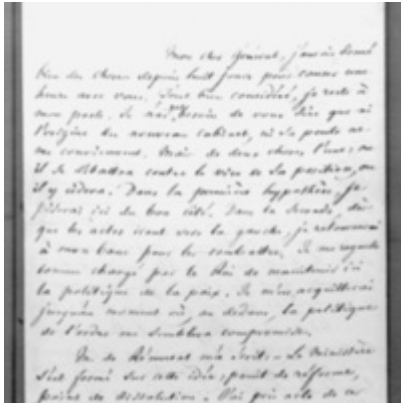 Mon cher Général, j'aurais donné
bien des choses depuis huit jours pour causer une
heure avec vous. Tout bien considéré, je reste à
mon poste. Je n'ai pas besoin de vous dire que ni
l'origine du nouveau cabinet, ni sa pente ne
me conviennent. Mais de deux choses l'une: ou
il se débattra contre le vice de sa position, ou
il y cédera. Dans la première hypothèse, je
l'aiderai ici du bon côté. Dans la seconde, dès
que les actes iront vers la gauche, je retournerai
à mon banc pour les combattre. Je me regarde
comme chargé par le Roi de maintenir ici
la politique de la paix. Je m'en acquitterai
jusqu'au moment où, au dedans, la politique
de l'ordre me semblera compromise.
M. de Rémusat m'a écrit: Le Ministère
s'est formé sur cette idée; point de réforme,
point de dissolution. J'ai pris acte de ce